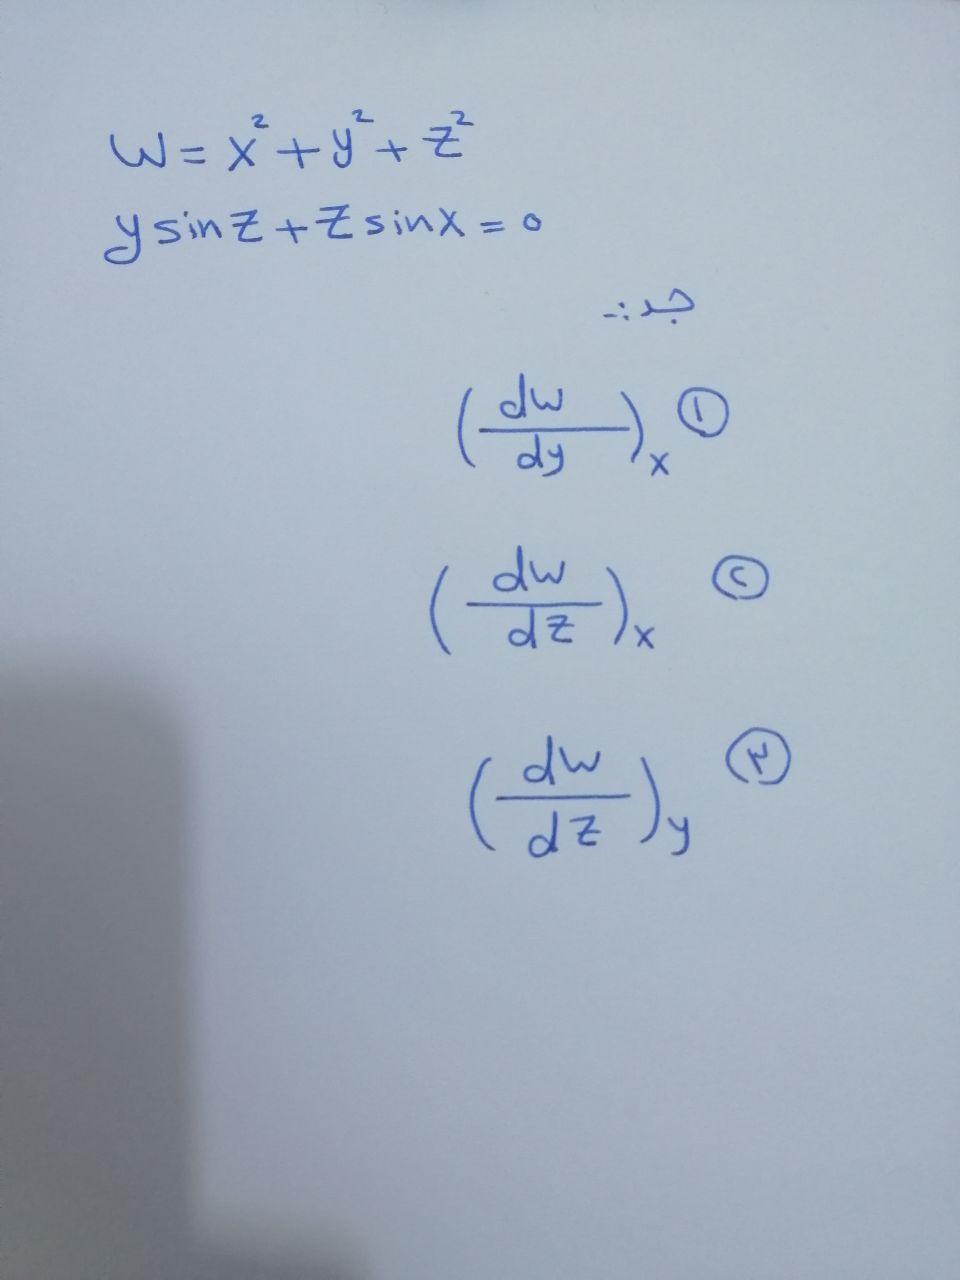 W = x² + y² + z²
y sin z + z sin x = 0
جد :-
① (dw/dy)x
② (dw/dz)x
③ (dw/dz)y